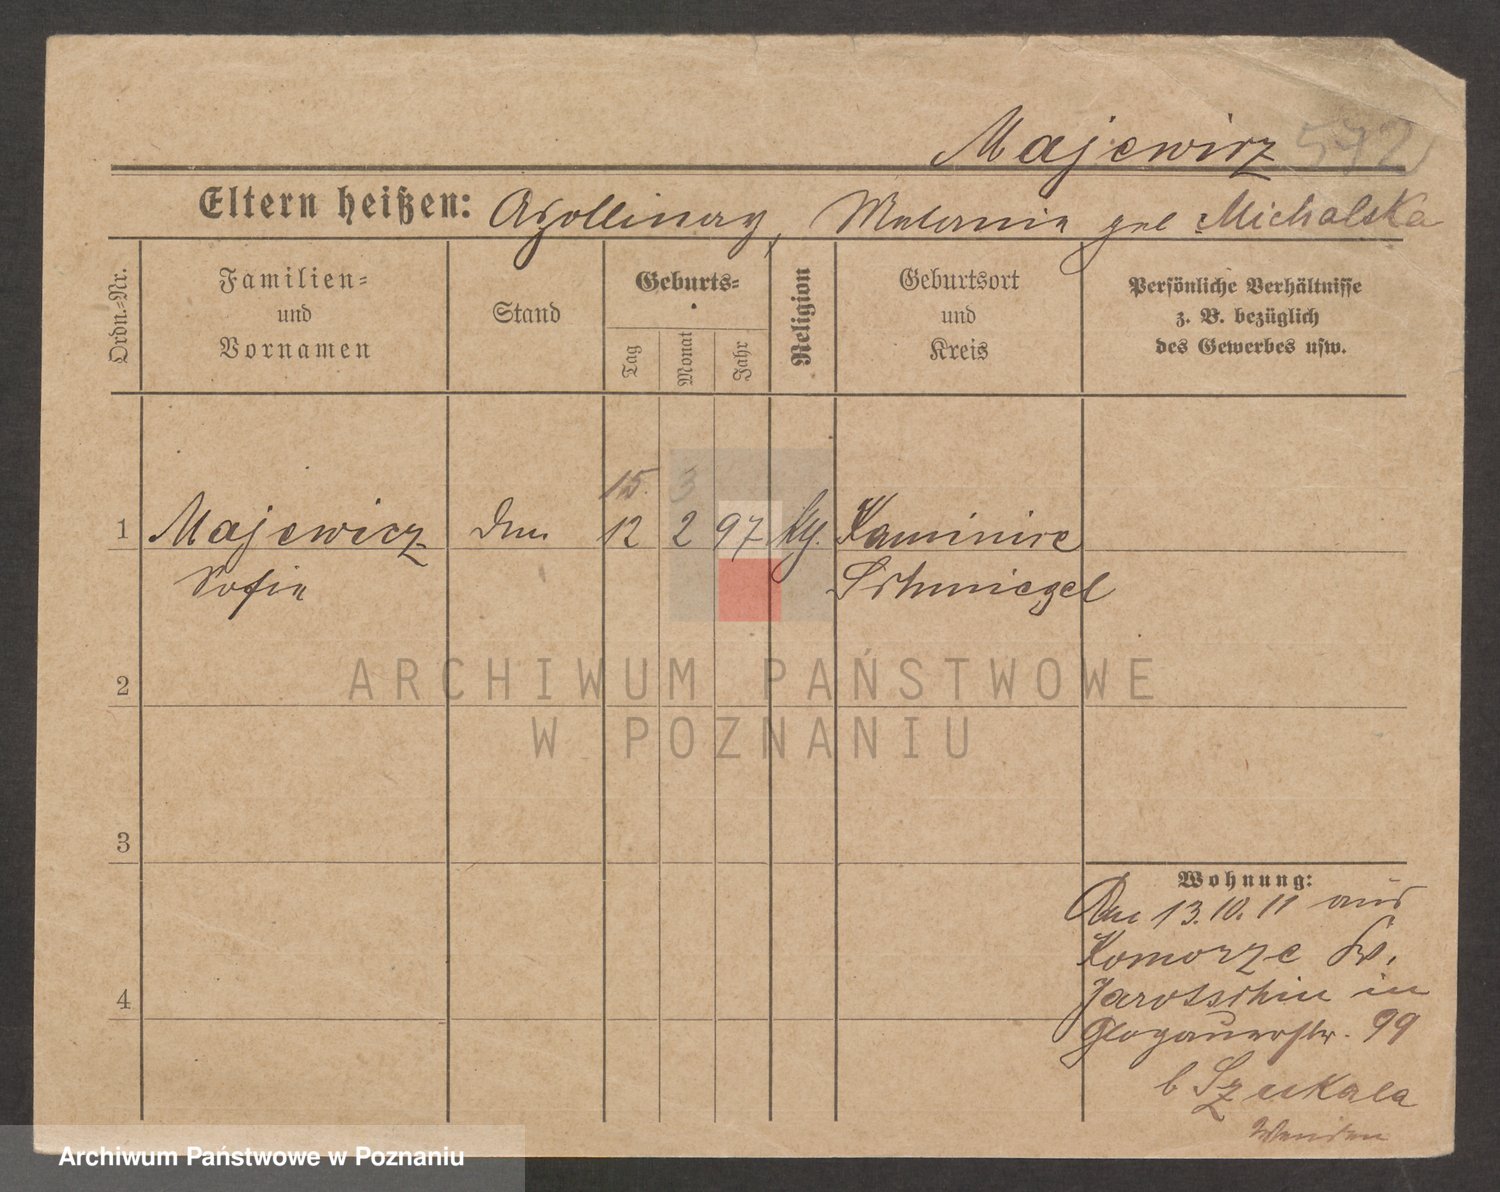 Majewicz 572
Eltern heißen: Apollinary, Melania geb. Michalska
Ordn.-Nr.
Familien-
und
Vornamen
Stand
Geburts-
Tag
Monat
Jahr
Religion
Geburtsort
und
Kreis
Persönliche Verhältnisse
z. B. bezüglich
des Gewerbes usw.
15. 3
1 Majewicz 12 2 97 Kaminiec
Sofia Schmiegel
2
ARCHIWUM PAŃSTWOWE
W POZNANIU
3
Wohnung:
13.10.11 aus
Komorze Kr.
4 Jarotschin in
Glogauerstr. 99
b Szukala
Archiwum Państwowe w Poznaniu